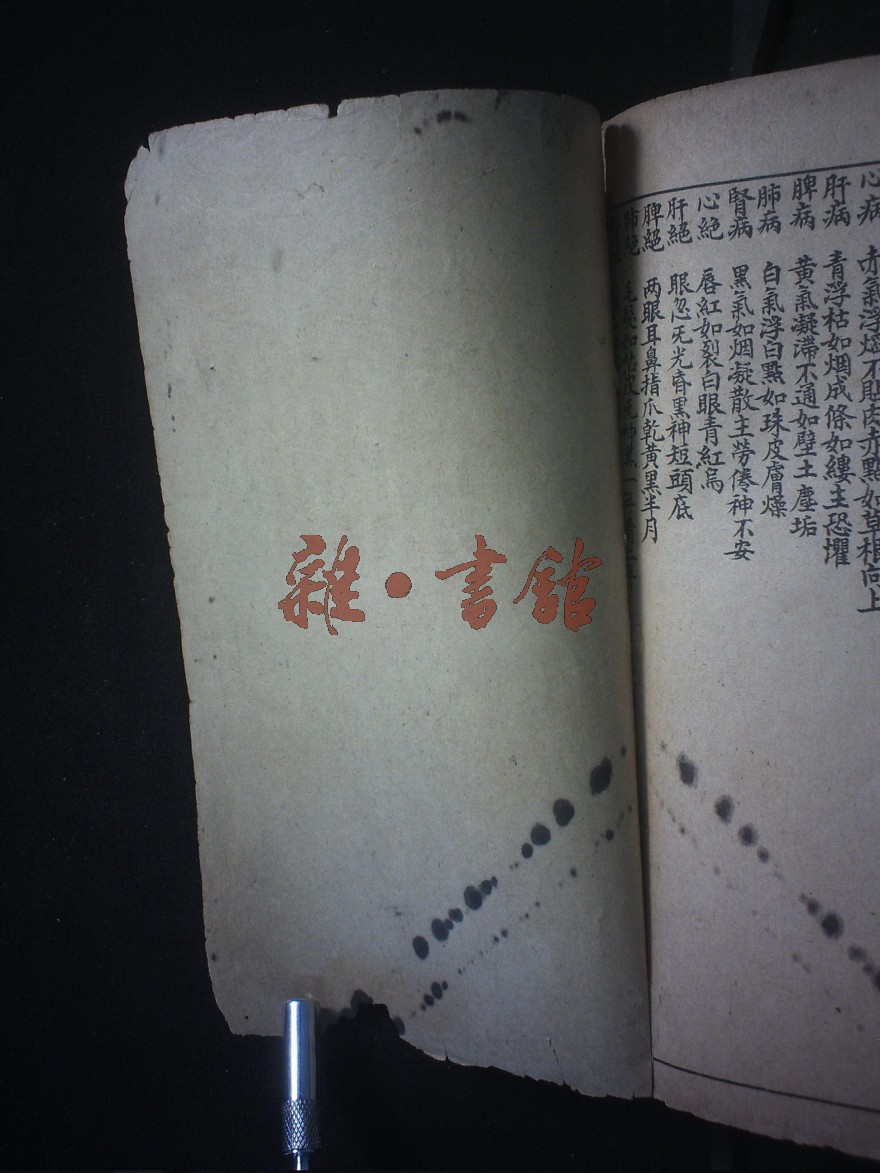 心病 赤氣浮燥不貼肉赤點如草根向上
肝病 青浮枯如烟成條如縷主恐懼
脾病 黄氣凝滯不通如壁土塵垢
肺病 白氣浮白點如珠皮膚燥
腎病 黑氣如烟凝散主勞倦神不安
心絶 唇紅如裂白眼青紅烏
肝絶 眼忽旡光昏黑神短頭底
脾絶 两眼耳鼻指爪乾黄黑半月
肺絶
雜·書館